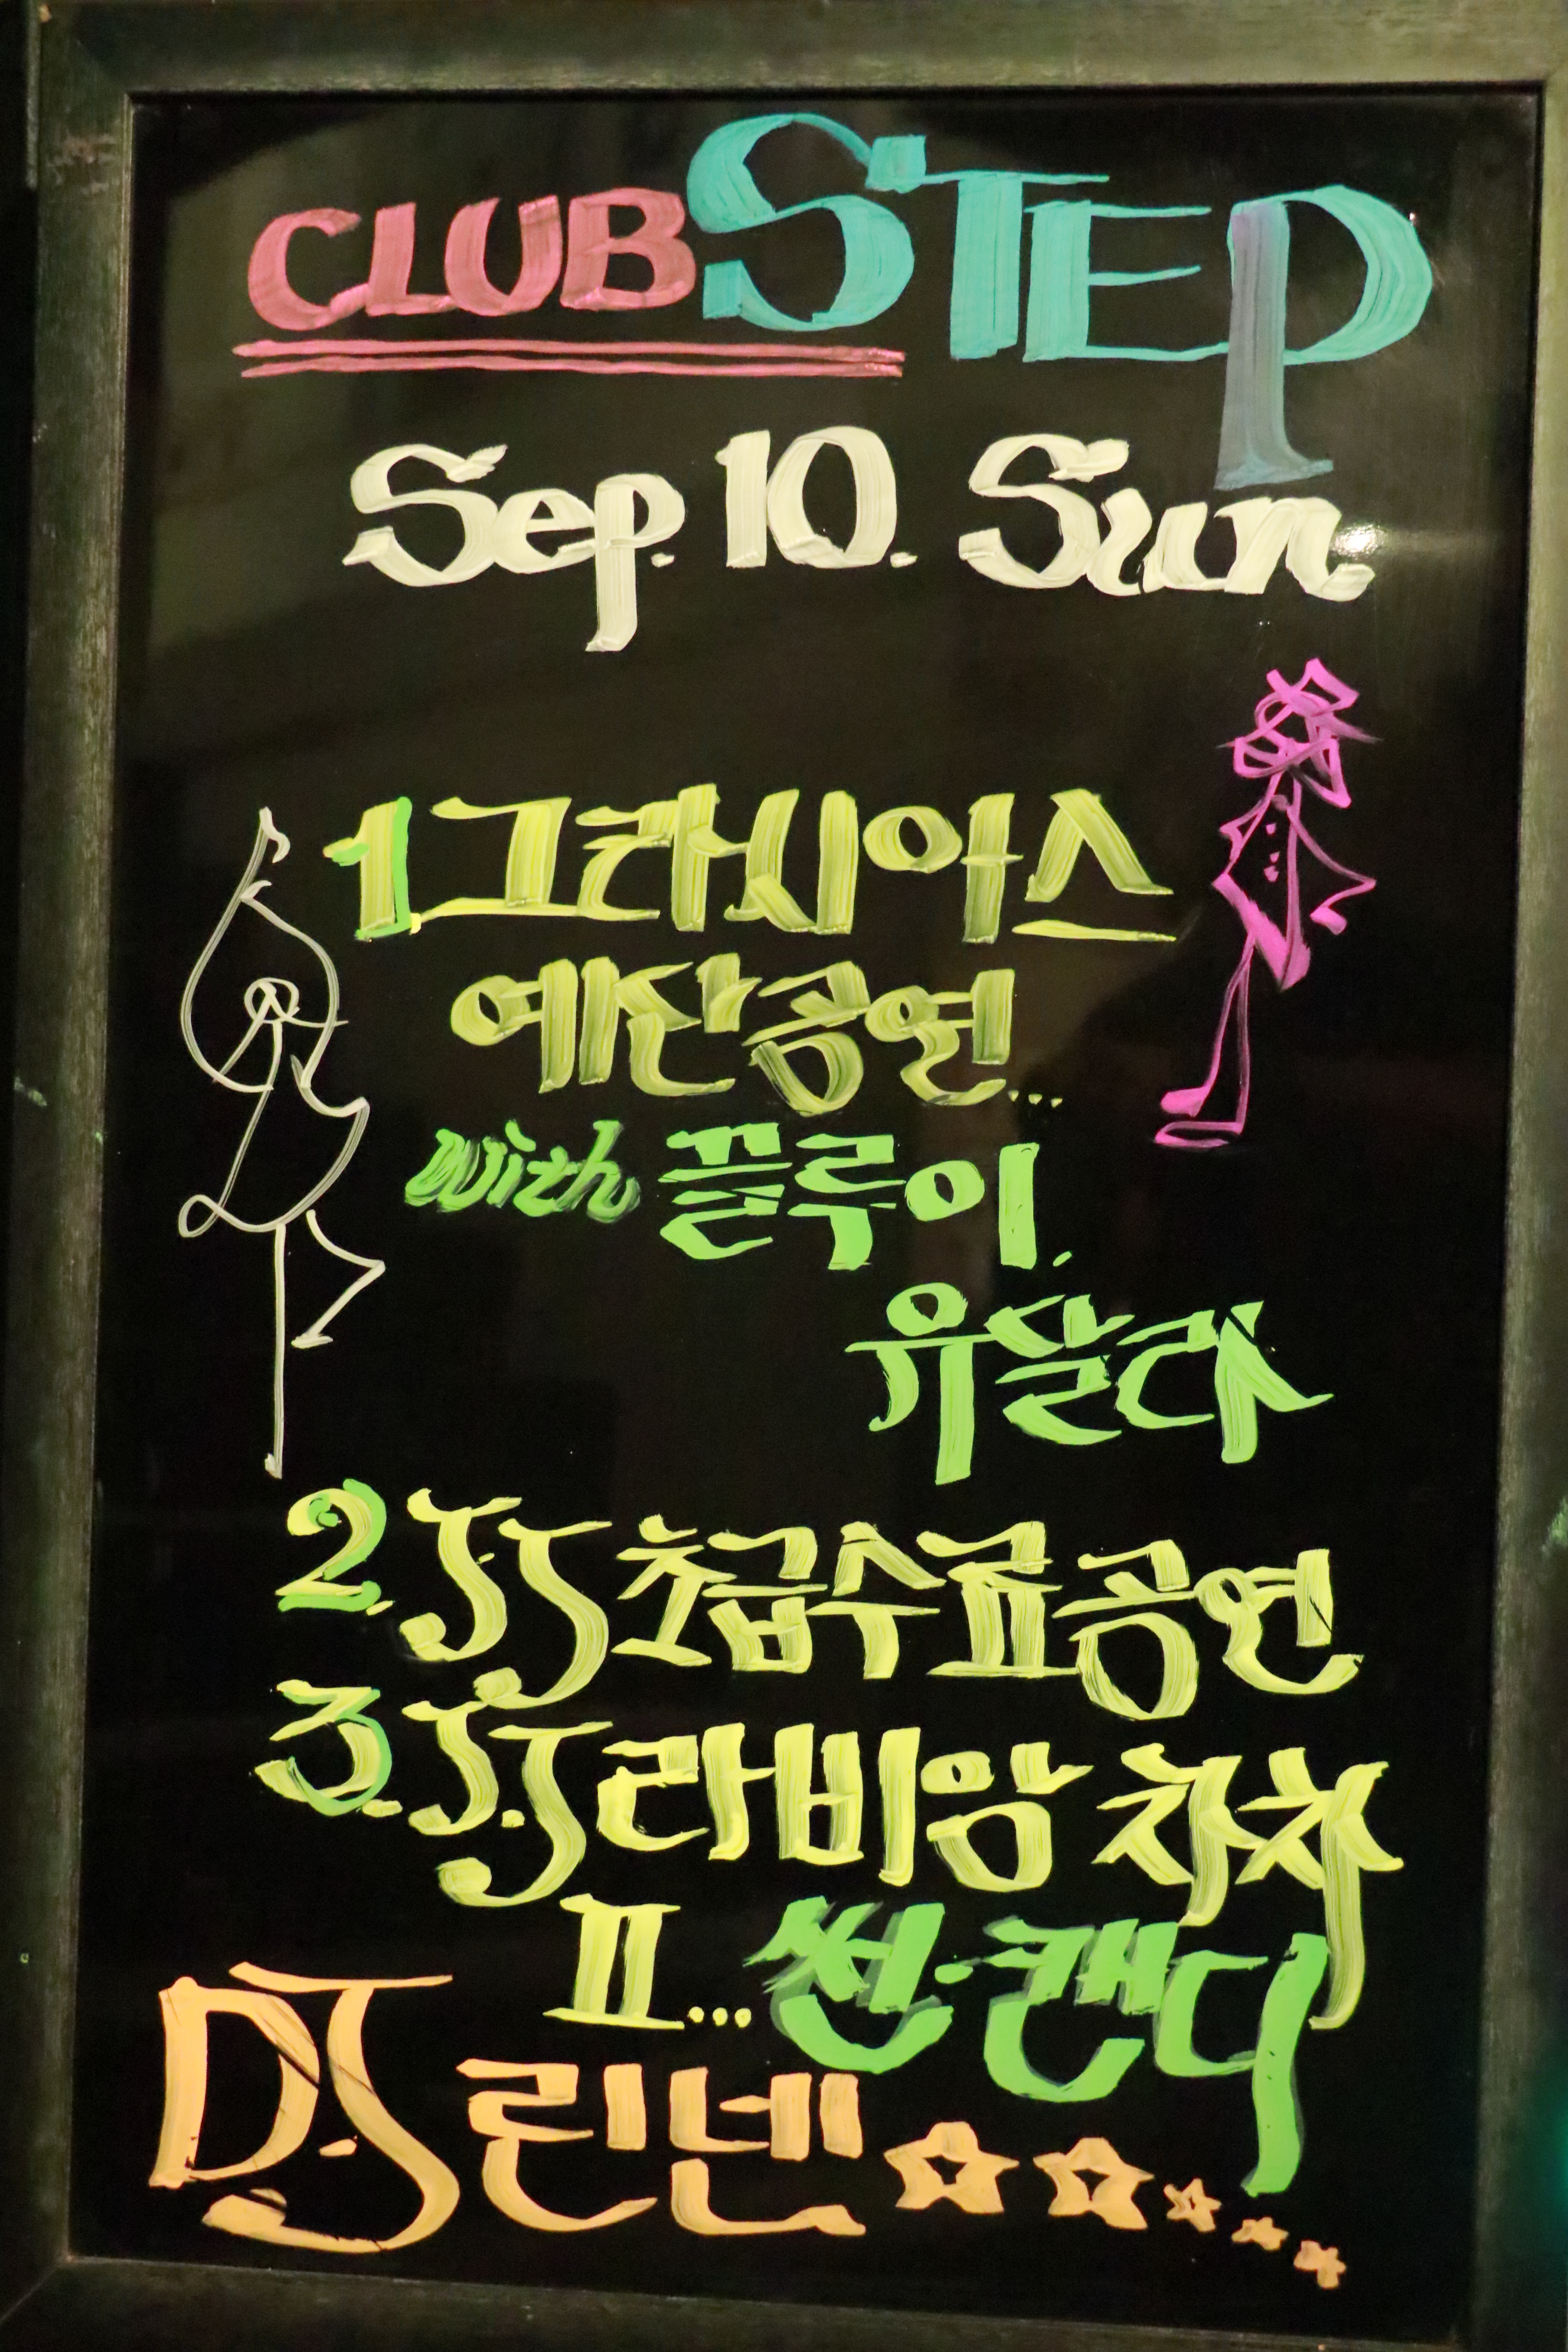 CLUB STEP
Sep. 10. Sun.
1. 그라시아스
예산공연...
with 끌루이.
유살라
2. J.J 초급수료공연
3. J.J 라비앙 차차
II... 썬.캔디
D.J 린넨 ☆☆☆☆☆